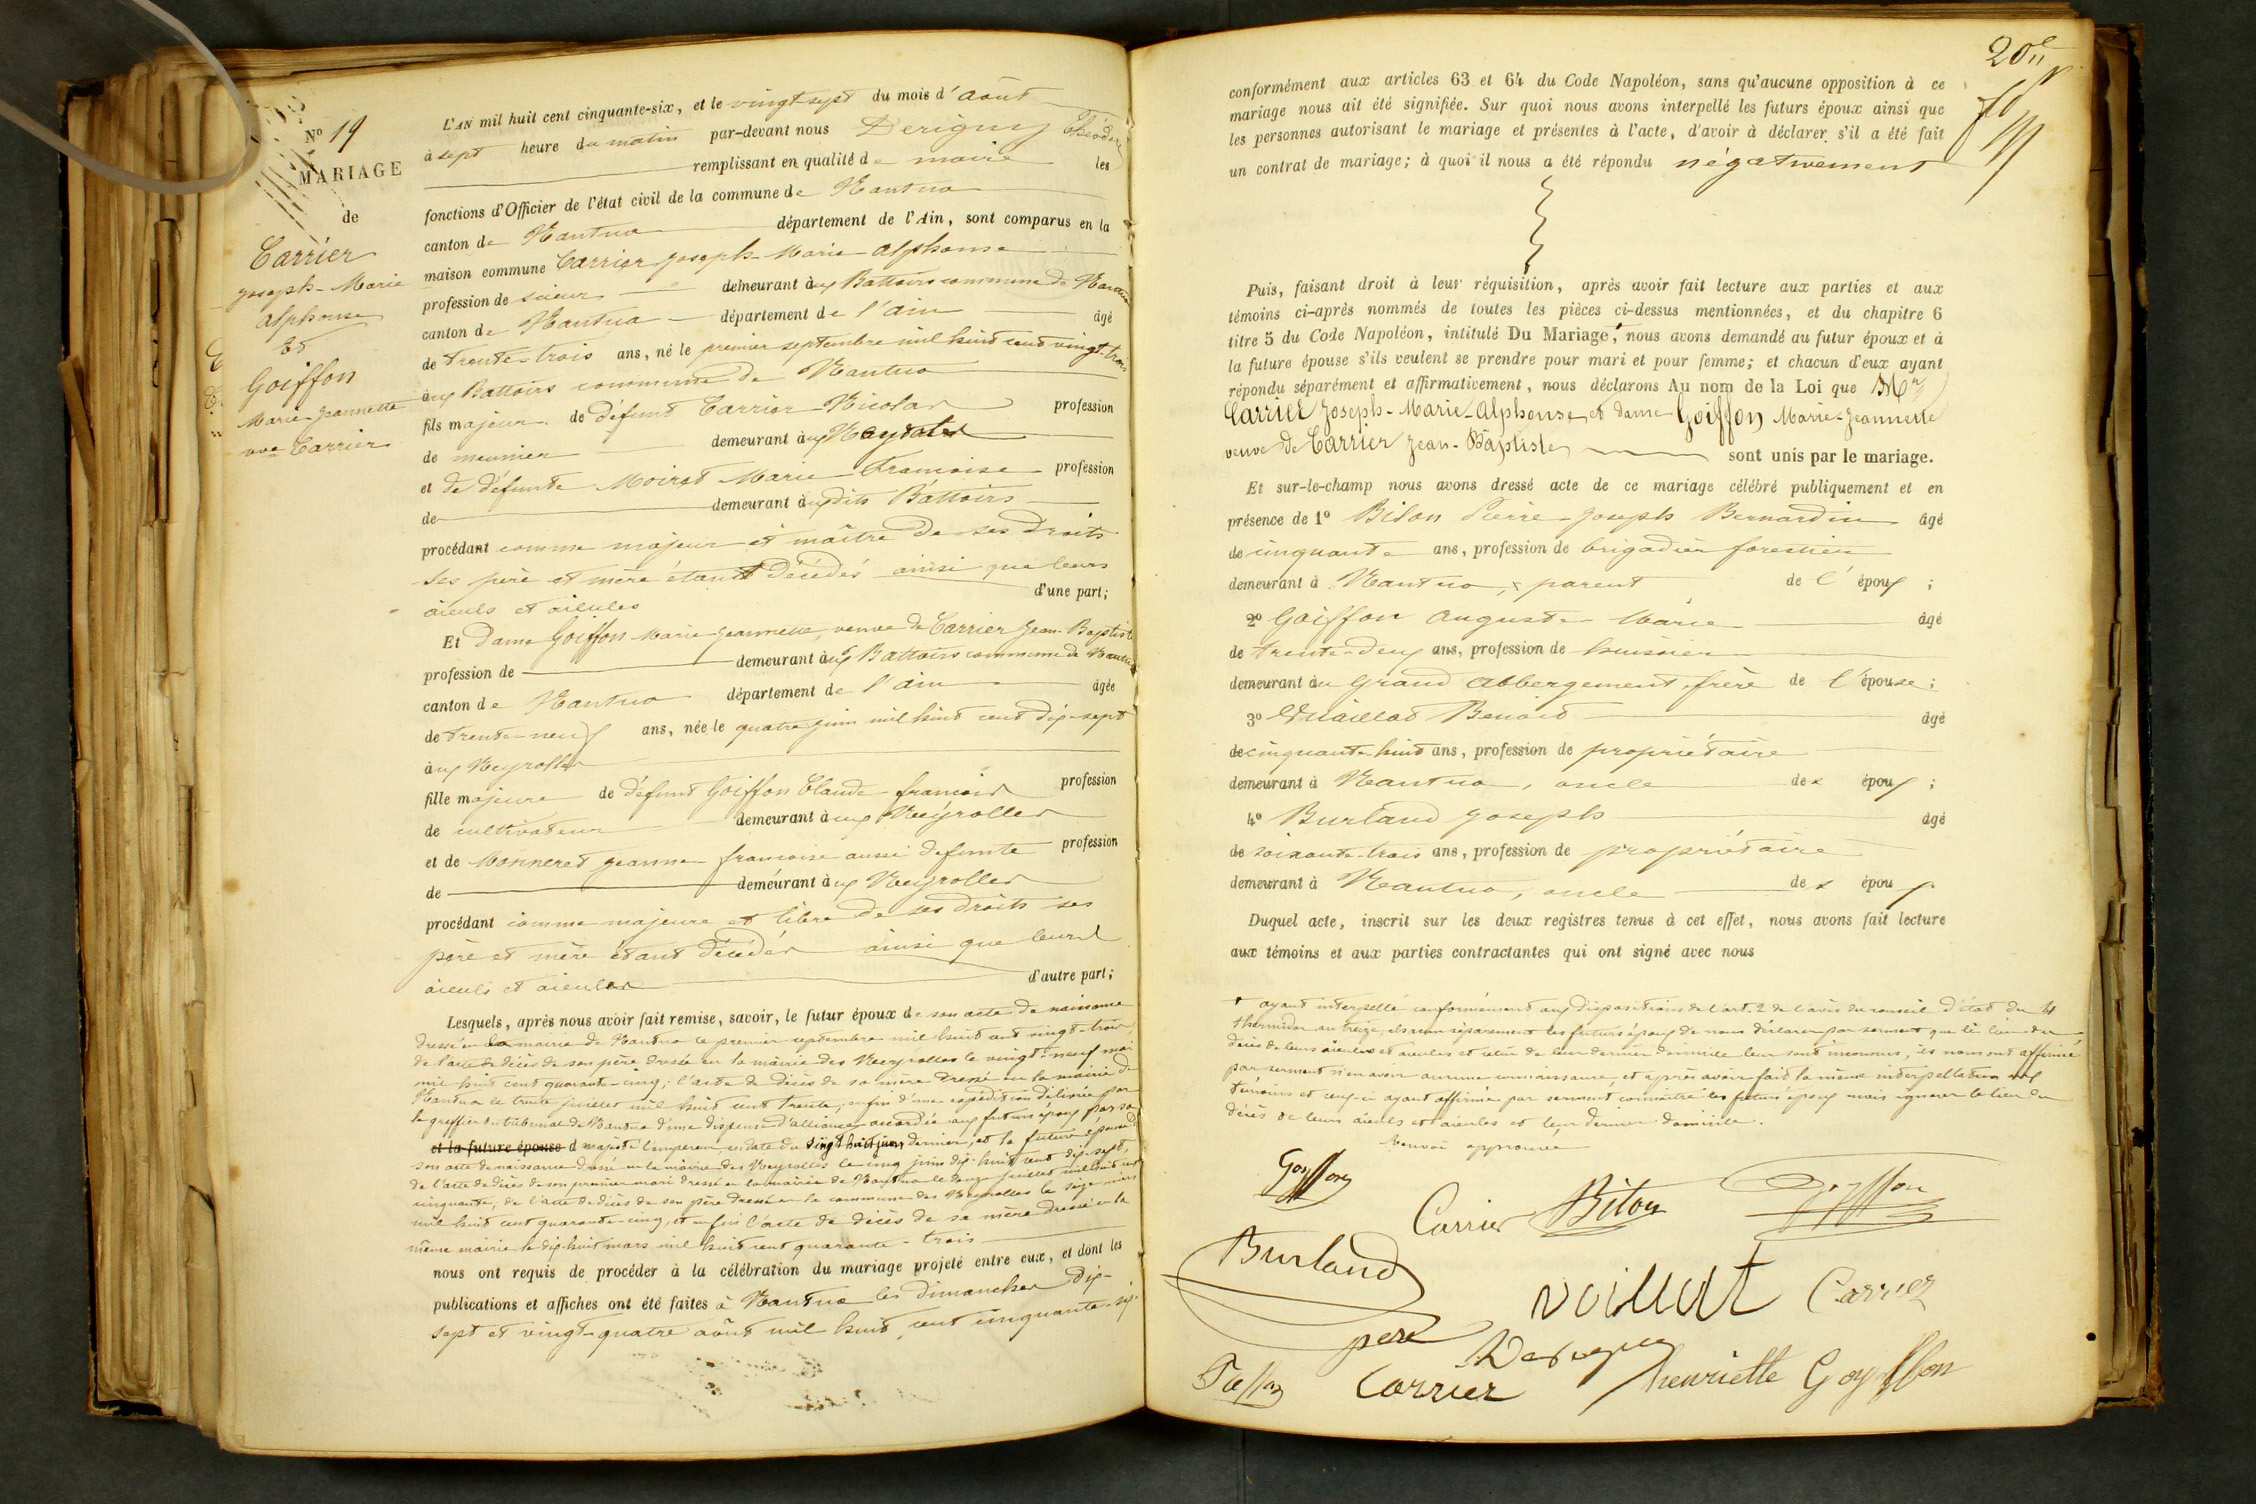 Nº 19
MARIAGE
de
Carrier
Joseph-Marie
Alphonse
Et
Goiffon
Marie-Jeannette
vve Carrier
L'AN mil huit cent cinquante-six, et le vingt-sept du mois d'août
à sept heure du matin par-devant nous Derigny Théodore
remplissant en qualité de maire les
fonctions d'Officier de l'état civil de la commune de Nantua
canton de Nantua département de l'Ain, sont comparus en la
maison commune Carrier Joseph-Marie Alphonse
profession de scieur demeurant aux Battoirs commune de Nantua
canton de Nantua département de l'ain âgé
de trente-trois ans, né le premier septembre mil huit cent vingt-trois
aux Battoirs commune de Nantua
fils majeur de défunt Carrier Nicolas profession
de meunier demeurant aux Neyrolles
et de défunte Moirot Marie Francoise profession
de demeurant auxdits Battoirs
procédant comme majeur et maître de ses droits
ses père et mère étant décédés ainsi que leurs
aieuls et aieules d'une part;
Et Dame Goiffon Marie-Jeannette, veuve de Carrier Jean-Baptiste
profession de demeurant aux Battoirs commune de Nantua
canton de Nantua département de l'ain âgée
de trente-neuf ans, née le quatre juin mil huit cent dix-sept
aux Neyrolles
fille majeure de défunt Goiffon Claude-francois profession
de cultivateur demeurant aux Neyrolles
et de Monneret Jeanne francoise aussi defunte profession
de demeurant aux Neyrolles
procédant comme majeure et libre de ses droits ses
père et mère étant décédés ainsi que leurs
aieuls et aieules d'autre part;
Lesquels, après nous avoir fait remise, savoir, le futur époux de son acte de naissance
dressé en la mairie de Nantua le premier septembre mil huit cent vingt-trois,
de l'acte de décès de son père dressé en la mairie des Neyrolles le vingt-neuf mai
mil huit cent quarante-cinq; l'acte de décès de sa mère dressé en la mairie de
Nantua le trente juillet mil huit cent trente, enfin d'une expédition délivrée par
le greffier du tribunal de Nantua d'une dispense d'alliance accordée aux futurs époux par sa
et la future épouse d majesté l'empereur, en date du vingt huit juin dernier, et la future épouse de
son acte de naissance dressé en la mairie des Neyrolles le cinq juin dix-huit cent dix-sept,
de l'acte de décès de son premier mari dressé en la mairie de Nantua le douze juillet mil huit cent
cinquante, de l'acte de décès de son père dressé en la commune des Neyrolles le seize mars
mil huit cent quarante-cinq, et enfin l'acte de décès de sa mère dressé en la
même mairie le dix-huit mars mil huit cent quarante-trois
nous ont requis de procéder à la célébration du mariage projeté entre eux, et dont les
publications et affiches ont été faites à Nantua les dimanches dix-
sept et vingt-quatre août mil huit cent cinquante-six
20e
conformément aux articles 63 et 64 du Code Napoléon, sans qu'aucune opposition à ce
mariage nous ait été signifiée. Sur quoi nous avons interpellé les futurs époux ainsi que
les personnes autorisant le mariage et présentes à l'acte, d'avoir à déclarer s'il a été fait
un contrat de mariage; à quoi il nous a été répondu négativement
Puis, faisant droit à leur réquisition, après avoir fait lecture aux parties et aux
témoins ci-après nommés de toutes les pièces ci-dessus mentionnées, et du chapitre 6
titre 5 du Code Napoléon, intitulé Du Mariage, nous avons demandé au futur époux et à
la future épouse s'ils veulent se prendre pour mari et pour femme; et chacun d'eux ayant
répondu séparément et affirmativement, nous déclarons Au nom de la Loi que Mr
Carrier Joseph-Marie-Alphonse et dame Goiffon Marie-Jeannette
veuve de Carrier Jean-Baptiste sont unis par le mariage.
Et sur-le-champ nous avons dressé acte de ce mariage célébré publiquement et en
présence de 1º Biton Pierre-Joseph Bernardin âgé
de cinquante ans, profession de brigadier forestier
demeurant à Nantua, parent de l'époux;
2º Goiffon Auguste Marie âgé
de trente-deux ans, profession de huissier
demeurant au Grand Abbergement, frère de l'épouse;
3º Vuaillat Benoit âgé
de cinquante huit ans, profession de propriétaire
demeurant à Nantua, oncle des époux;
4º Burland Joseph âgé
de soixante-trois ans, profession de propriétaire
demeurant à Nantua, oncle des époux
Duquel acte, inscrit sur les deux registres tenus à cet effet, nous avons fait lecture
aux témoins et aux parties contractantes qui ont signé avec nous
ayant interpellé conformément aux dispositions de l'art. 2 de l'avis du conseil d'état du 4
thermidor an treize, séparément les futurs époux de nous déclarer par serment que le lieu du
décès de leurs aieules et aieules et celui de leur dernier domicile leur sont inconnus, ils nous ont affirmé
par serment n'en avoir aucune connaissance, et après avoir fait la même interpellation aux
témoins et ceux-ci ayant affirmé par serment connaître les futurs époux mais ignorer le lieu du
décès de leurs aieuls et aieules et leur dernier domicile.
Renvoi approuvé
Goyffon
Carrier Biton Goyffon
Burland
père
voillat Carrier
Derigny
Carrier henriette Goyffon